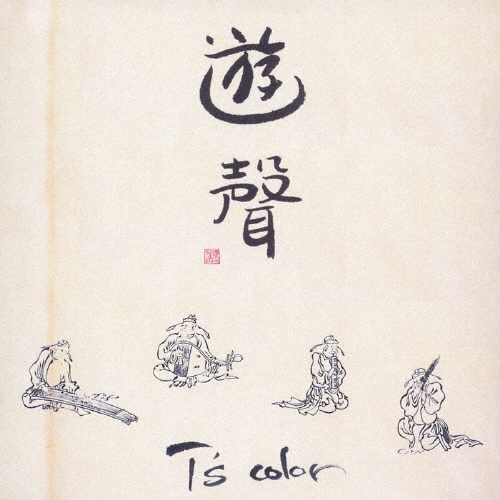 遊
聲
T's color